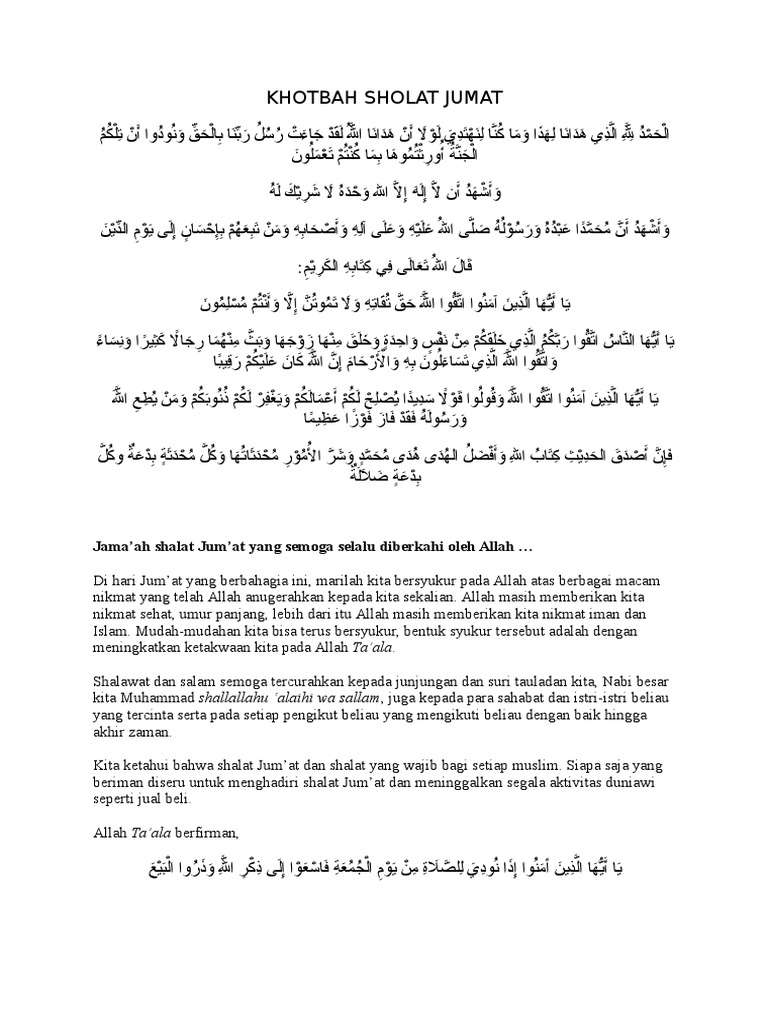 KHOTBAH SHOLAT JUMAT
الْحَمْدُ لِلَّهِ الَّذِي هَدَانَا لِهَذَا وَمَا كُنَّا لِنَهْتَدِيَ لَوْلَا أَنْ هَدَانَا اللَّهُ لَقَدْ جَاءَتْ رُسُلُ رَبِّنَا بِالْحَقِّ وَنُودُوا أَنْ تِلْكُمُ
الْجَنَّةُ أُورِثْتُمُوهَا بِمَا كُنْتُمْ تَعْمَلُونَ
وَأَشْهَدُ أَن لاَّ إِلَهَ إِلاَّ الله وَحْدَهُ لَا شَرِيْكَ لَهُ
وَأَشْهَدُ أَنَّ مُحَمَّدًا عَبْدُهُ وَرَسُوْلُهُ صَلَّى اللهُ عَلَيْهِ وَعَلَى آلِهِ وَأَصْحَابِهِ وَمَنْ تَبِعَهُمْ بِإِحْسَانٍ إِلَى يَوْمِ الدِّيْنَ
قَالَ اللهُ تَعَالَى فِي كِتَابِهِ الكَرِيْمِ:
يَا أَيُّهَا الَّذِينَ آمَنُوا اتَّقُوا اللَّهَ حَقَّ تُقَاتِهِ وَلَا تَمُوتُنَّ إِلَّا وَأَنْتُمْ مُسْلِمُونَ
يَا أَيُّهَا النَّاسُ اتَّقُوا رَبَّكُمُ الَّذِي خَلَقَكُمْ مِنْ نَفْسٍ وَاحِدَةٍ وَخَلَقَ مِنْهَا زَوْجَهَا وَبَثَّ مِنْهُمَا رِجَالًا كَثِيرًا وَنِسَاءً
وَاتَّقُوا اللَّهَ الَّذِي تَسَاءَلُونَ بِهِ وَالْأَرْحَامَ إِنَّ اللَّهَ كَانَ عَلَيْكُمْ رَقِيبًا
يَا أَيُّهَا الَّذِينَ آمَنُوا اتَّقُوا اللَّهَ وَقُولُوا قَوْلًا سَدِيدًا يُصْلِحْ لَكُمْ أَعْمَالَكُمْ وَيَغْفِرْ لَكُمْ ذُنُوبَكُمْ وَمَنْ يُطِعِ اللَّهَ
وَرَسُولَهُ فَقَدْ فَازَ فَوْزًا عَظِيمًا
فَإِنَّ أَصْدَقَ الحَدِيْثِ كِتَابُ اللهِ وَأَفْضَلُ الهُدَى هُدَى مُحَمَّدٍ وَشَرَّ الأُمُوْرِ مُحْدَثَاتُهَا وَكُلَّ مُحْدَثَةٍ بِدْعَةٌ وكُلَّ
بِدْعَةٍ ضَلاَلَةٌ
Jama’ah shalat Jum’at yang semoga selalu diberkahi oleh Allah …
Di hari Jum’at yang berbahagia ini, marilah kita bersyukur pada Allah atas berbagai macam
nikmat yang telah Allah anugerahkan kepada kita sekalian. Allah masih memberikan kita
nikmat sehat, umur panjang, lebih dari itu Allah masih memberikan kita nikmat iman dan
Islam. Mudah-mudahan kita bisa terus bersyukur, bentuk syukur tersebut adalah dengan
meningkatkan ketakwaan kita pada Allah Ta’ala.
Shalawat dan salam semoga tercurahkan kepada junjungan dan suri tauladan kita, Nabi besar
kita Muhammad shallallahu ‘alaihi wa sallam, juga kepada para sahabat dan istri-istri beliau
yang tercinta serta pada setiap pengikut beliau yang mengikuti beliau dengan baik hingga
akhir zaman.
Kita ketahui bahwa shalat Jum’at dan shalat yang wajib bagi setiap muslim. Siapa saja yang
beriman diseru untuk menghadiri shalat Jum’at dan meninggalkan segala aktivitas duniawi
seperti jual beli.
Allah Ta’ala berfirman,
يَا أَيُّهَا الَّذِينَ آَمَنُوا إِذَا نُودِيَ لِلصَّلَاةِ مِنْ يَوْمِ الْجُمُعَةِ فَاسْعَوْا إِلَى ذِكْرِ اللَّهِ وَذَرُوا الْبَيْعَ